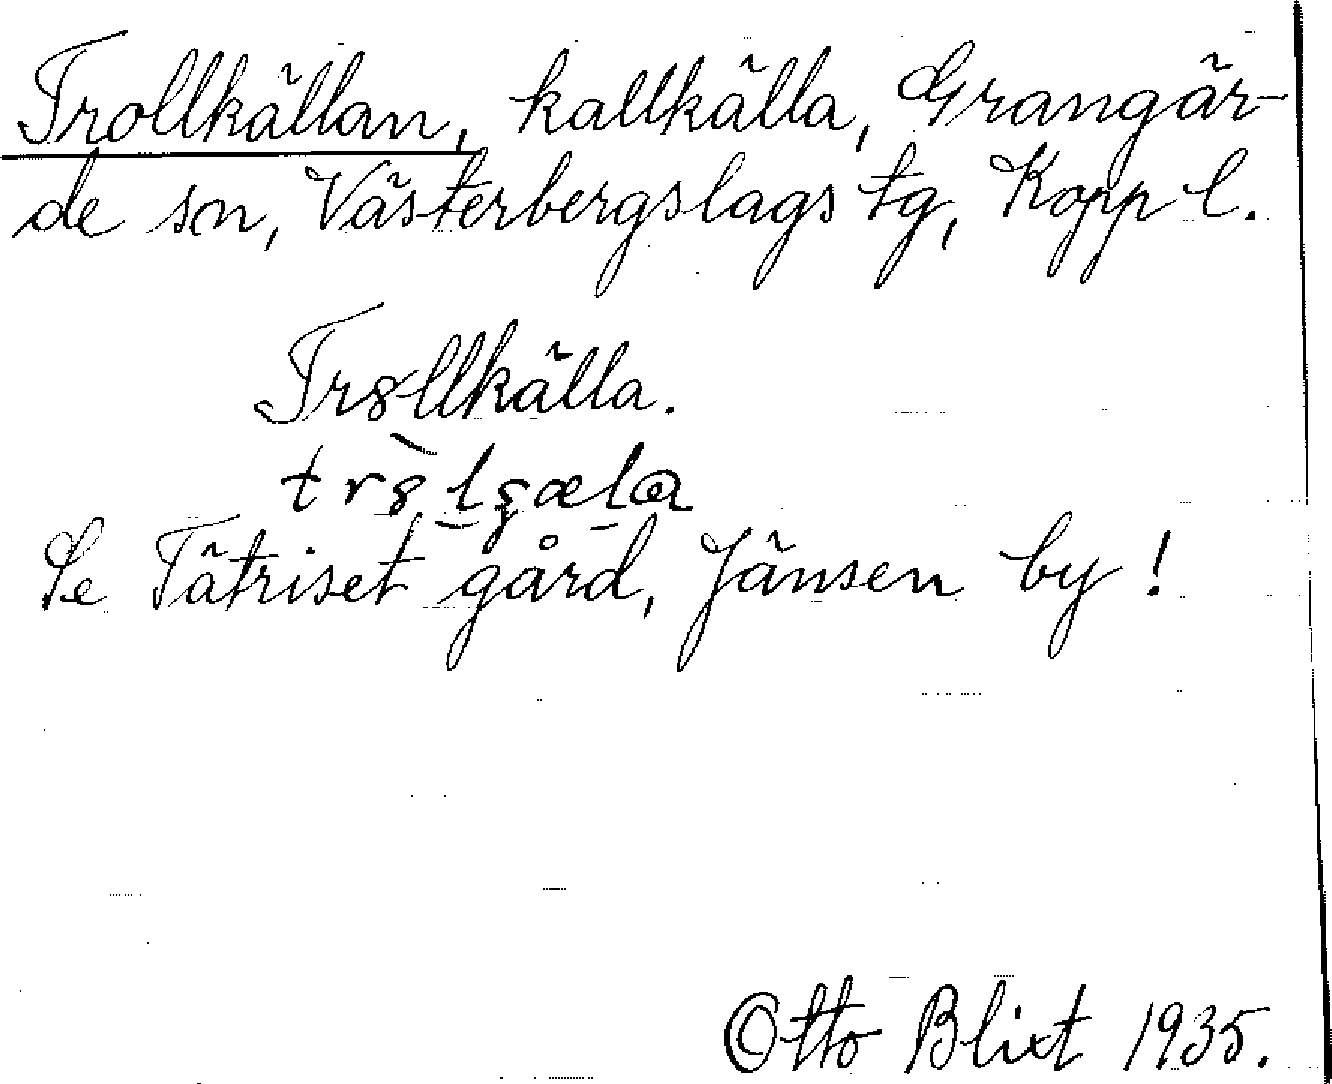 Trollkällan, kallkälla, Grangär-
de sn, Västerbergslags tg, Kopp l.
Trȣllkälla.
trȣ̀lȿæla
Se Tätriset gård, Jänsen by!
Otto Blixt 1935.